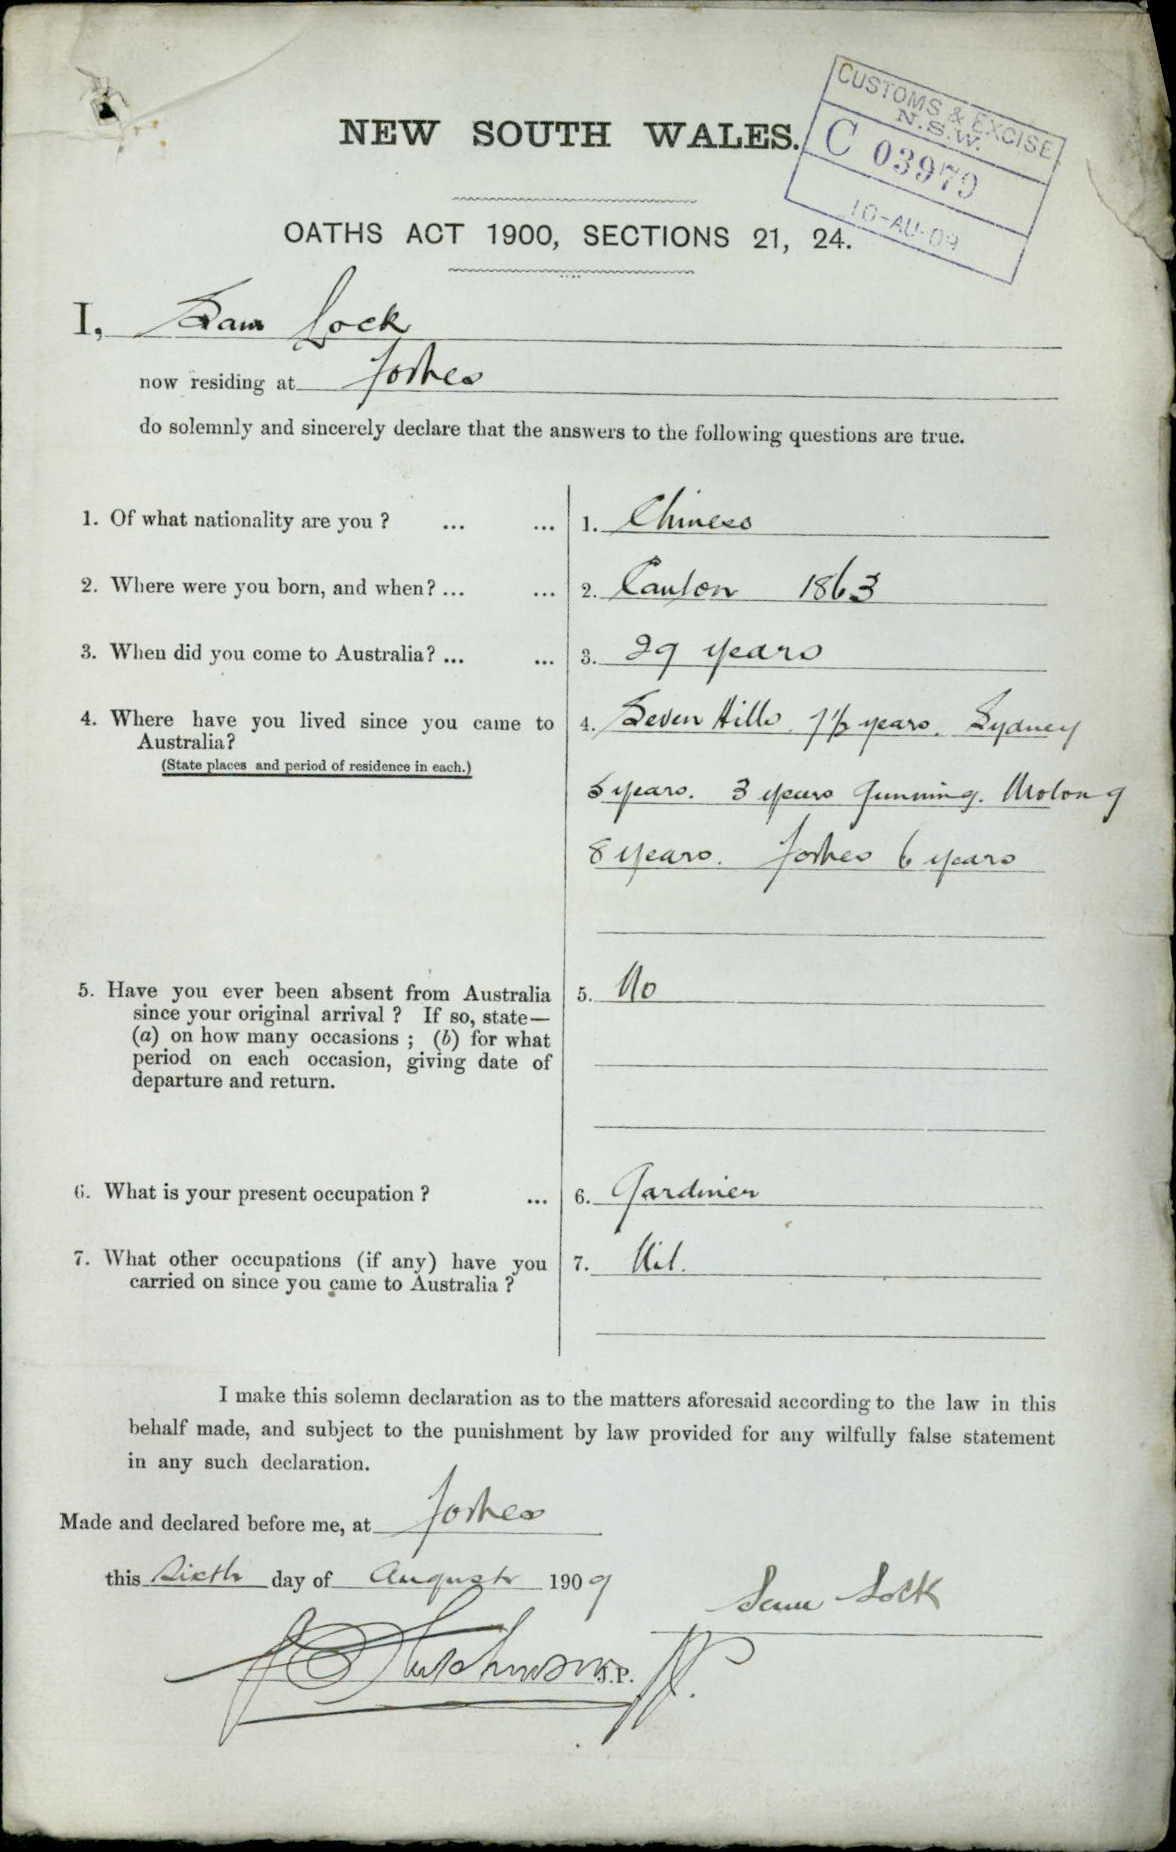 CUSTOMS & EXCISE
N.S.W.
C 03979
10-AU-09
NEW SOUTH WALES.
OATHS ACT 1900, SECTIONS 21, 24.
I, Sam Lock
now residing at Forbes
do solemnly and sincerely declare that the answers to the following questions are true.
1. Of what nationality are you ? ... ... 1. Chinese
2. Where were you born, and when? ... ... 2. Canton 1863
3. When did you come to Australia? ... ... 3. 29 years
4. Where have you lived since you came to 4. Seven Hills 7½ years. Sydney
Australia?
(State places and period of residence in each.)
5 years. 3 years Gunning. Molong
8 years. Forbes 6 years
5. Have you ever been absent from Australia 5. No
since your original arrival ? If so, state—
(a) on how many occasions ; (b) for what
period on each occasion, giving date of
departure and return.
6. What is your present occupation ? ... 6. Gardiner
7. What other occupations (if any) have you 7. Nil.
carried on since you came to Australia ?
I make this solemn declaration as to the matters aforesaid according to the law in this
behalf made, and subject to the punishment by law provided for any wilfully false statement
in any such declaration.
Made and declared before me, at Forbes
this Sixth day of August 1909
Sam Lock
Hutchinson J.P. JP.